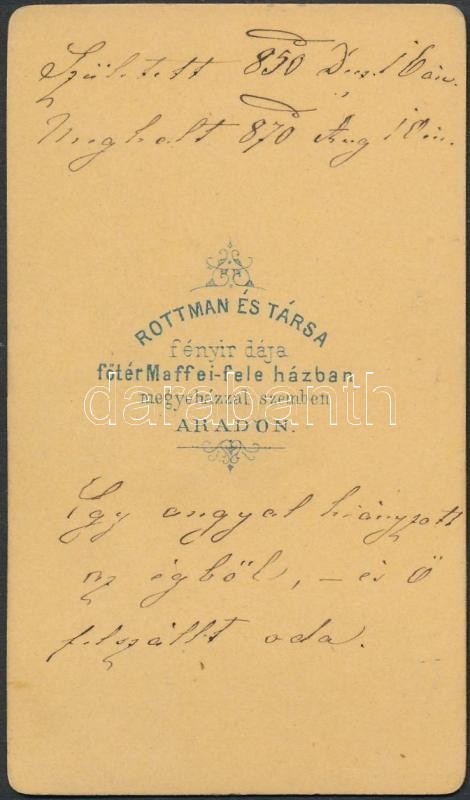 Született 850 Dez. 16án.
Meghalt 870 Aug 18án.
ROTTMAN ÉS TÁRSA
fényir dája
főtér Maffei-fele házban
megyeházzal szemben
ARADON.
darabanth
Egy angyal hiányzott
az égből, – és Ő
felszállt oda.